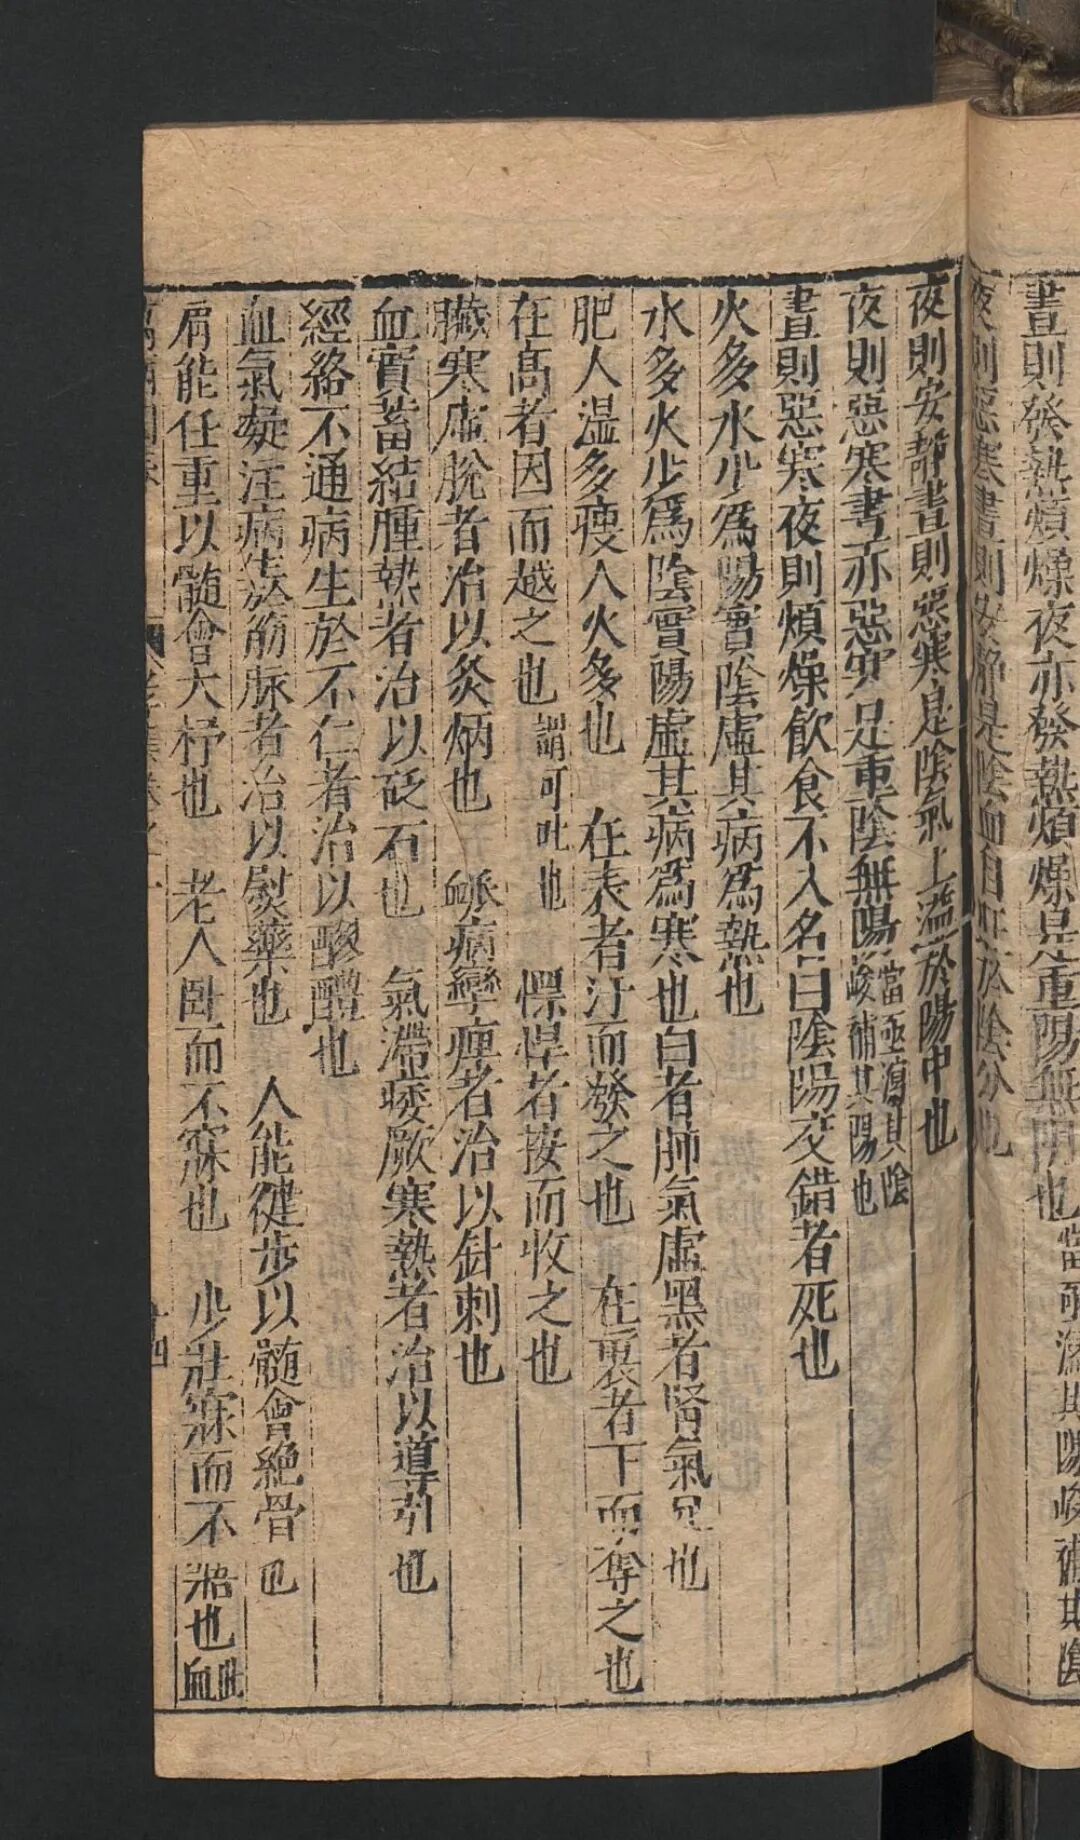 晝則發熱煩燥夜亦發熱煩燥是重陽無陰也當亟瀉其陽峻補其陰
夜則惡寒晝則安靜是陰血自旺於陰分也
夜則安靜晝則惡寒是陰氣上溢於陽中也
夜則惡寒晝亦惡寒是重陰無陽當亟瀉其陰峻補其陽也
晝則惡寒夜則煩燥飲食不入名曰陰陽交錯者死也
火多水少爲陽實陰虛其病爲熱也
水多火少爲陰實陽虛其病爲寒也白者肺氣虛黑者腎氣足也
肥人濕多瘦人火多也 在表者汗而發之也 在裏者下而奪之也
在高者因而越之也謂可吐也 慓悍者按而收之也
臟寒虛脫者治以灸焫也 脈病攣痹者治以針刺也
血實蓄結腫熱者治以砭石也 氣滯痿厥寒熱者治以導引也
經絡不通病生於不仁者治以醪醴也
血氣凝注病生於筋脉者治以熨藥也 人能健步以髓會絕骨也
肩能任重以髓會大杼也 老人臥而不寐也 少壯寐而不寤也血
十四